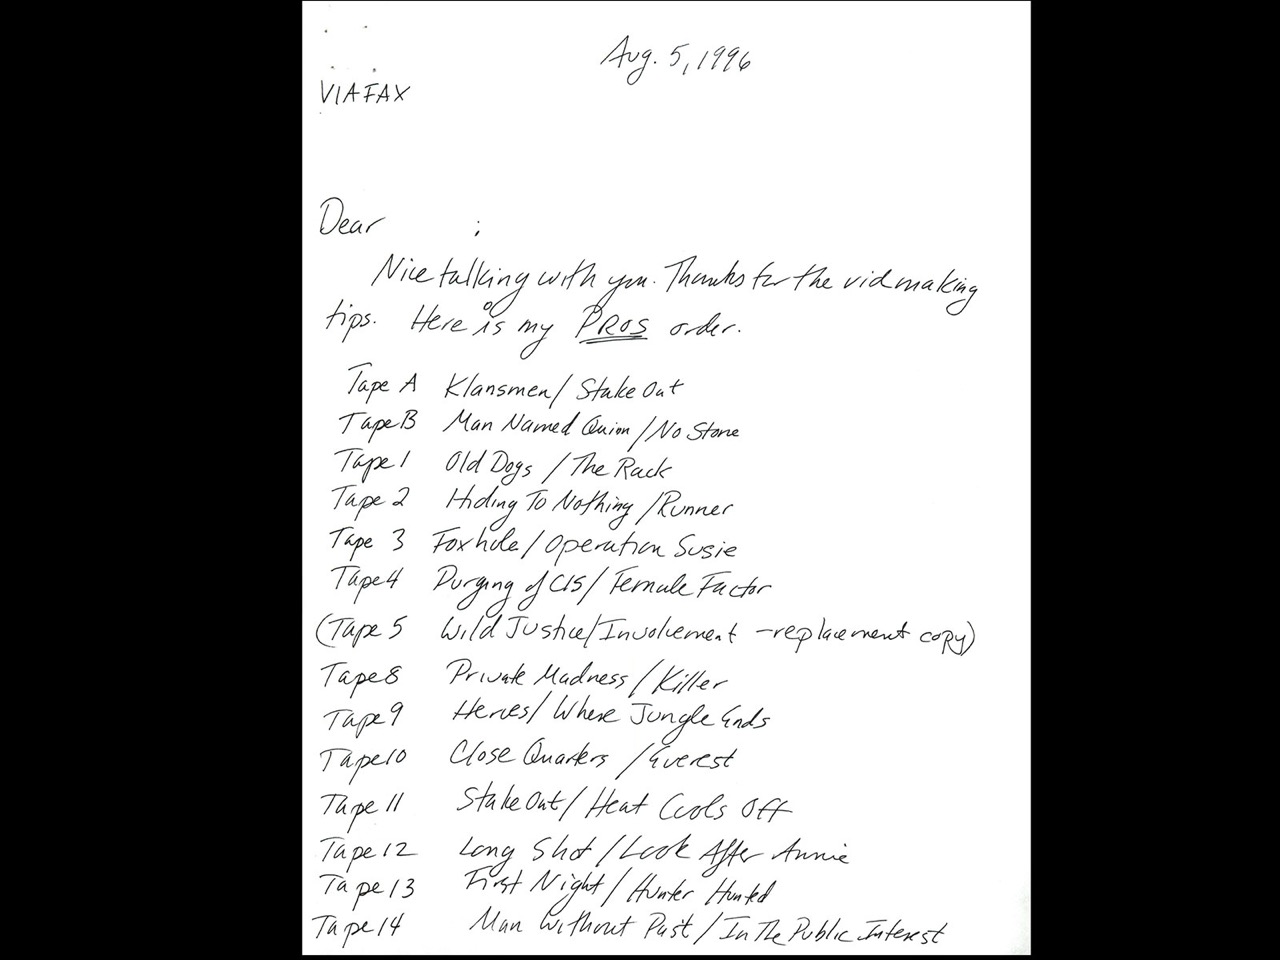 Aug. 5, 1996
VIA FAX
Dear ;
Nice talking with you. Thanks for the vidmaking
tips. Here is my PROS order.
Tape A Klansmen / Stake Out
Tape B Man Named Quinn / No Stone
Tape 1 Old Dogs / The Rack
Tape 2 Hiding To Nothing / Runner
Tape 3 Foxhole / Operation Susie
Tape 4 Purging of CI5 / Female Factor
(Tape 5 Wild Justice / Involvement - replacement copy)
Tape 8 Private Madness / Killer
Tape 9 Heroes / Where Jungle Ends
Tape 10 Close Quarters / Everest
Tape 11 Stake Out / Heat Cools Off
Tape 12 Long Shot / Look After Annie
Tape 13 First Night / Hunter Hunted
Tape 14 Man Without Past / In The Public Interest